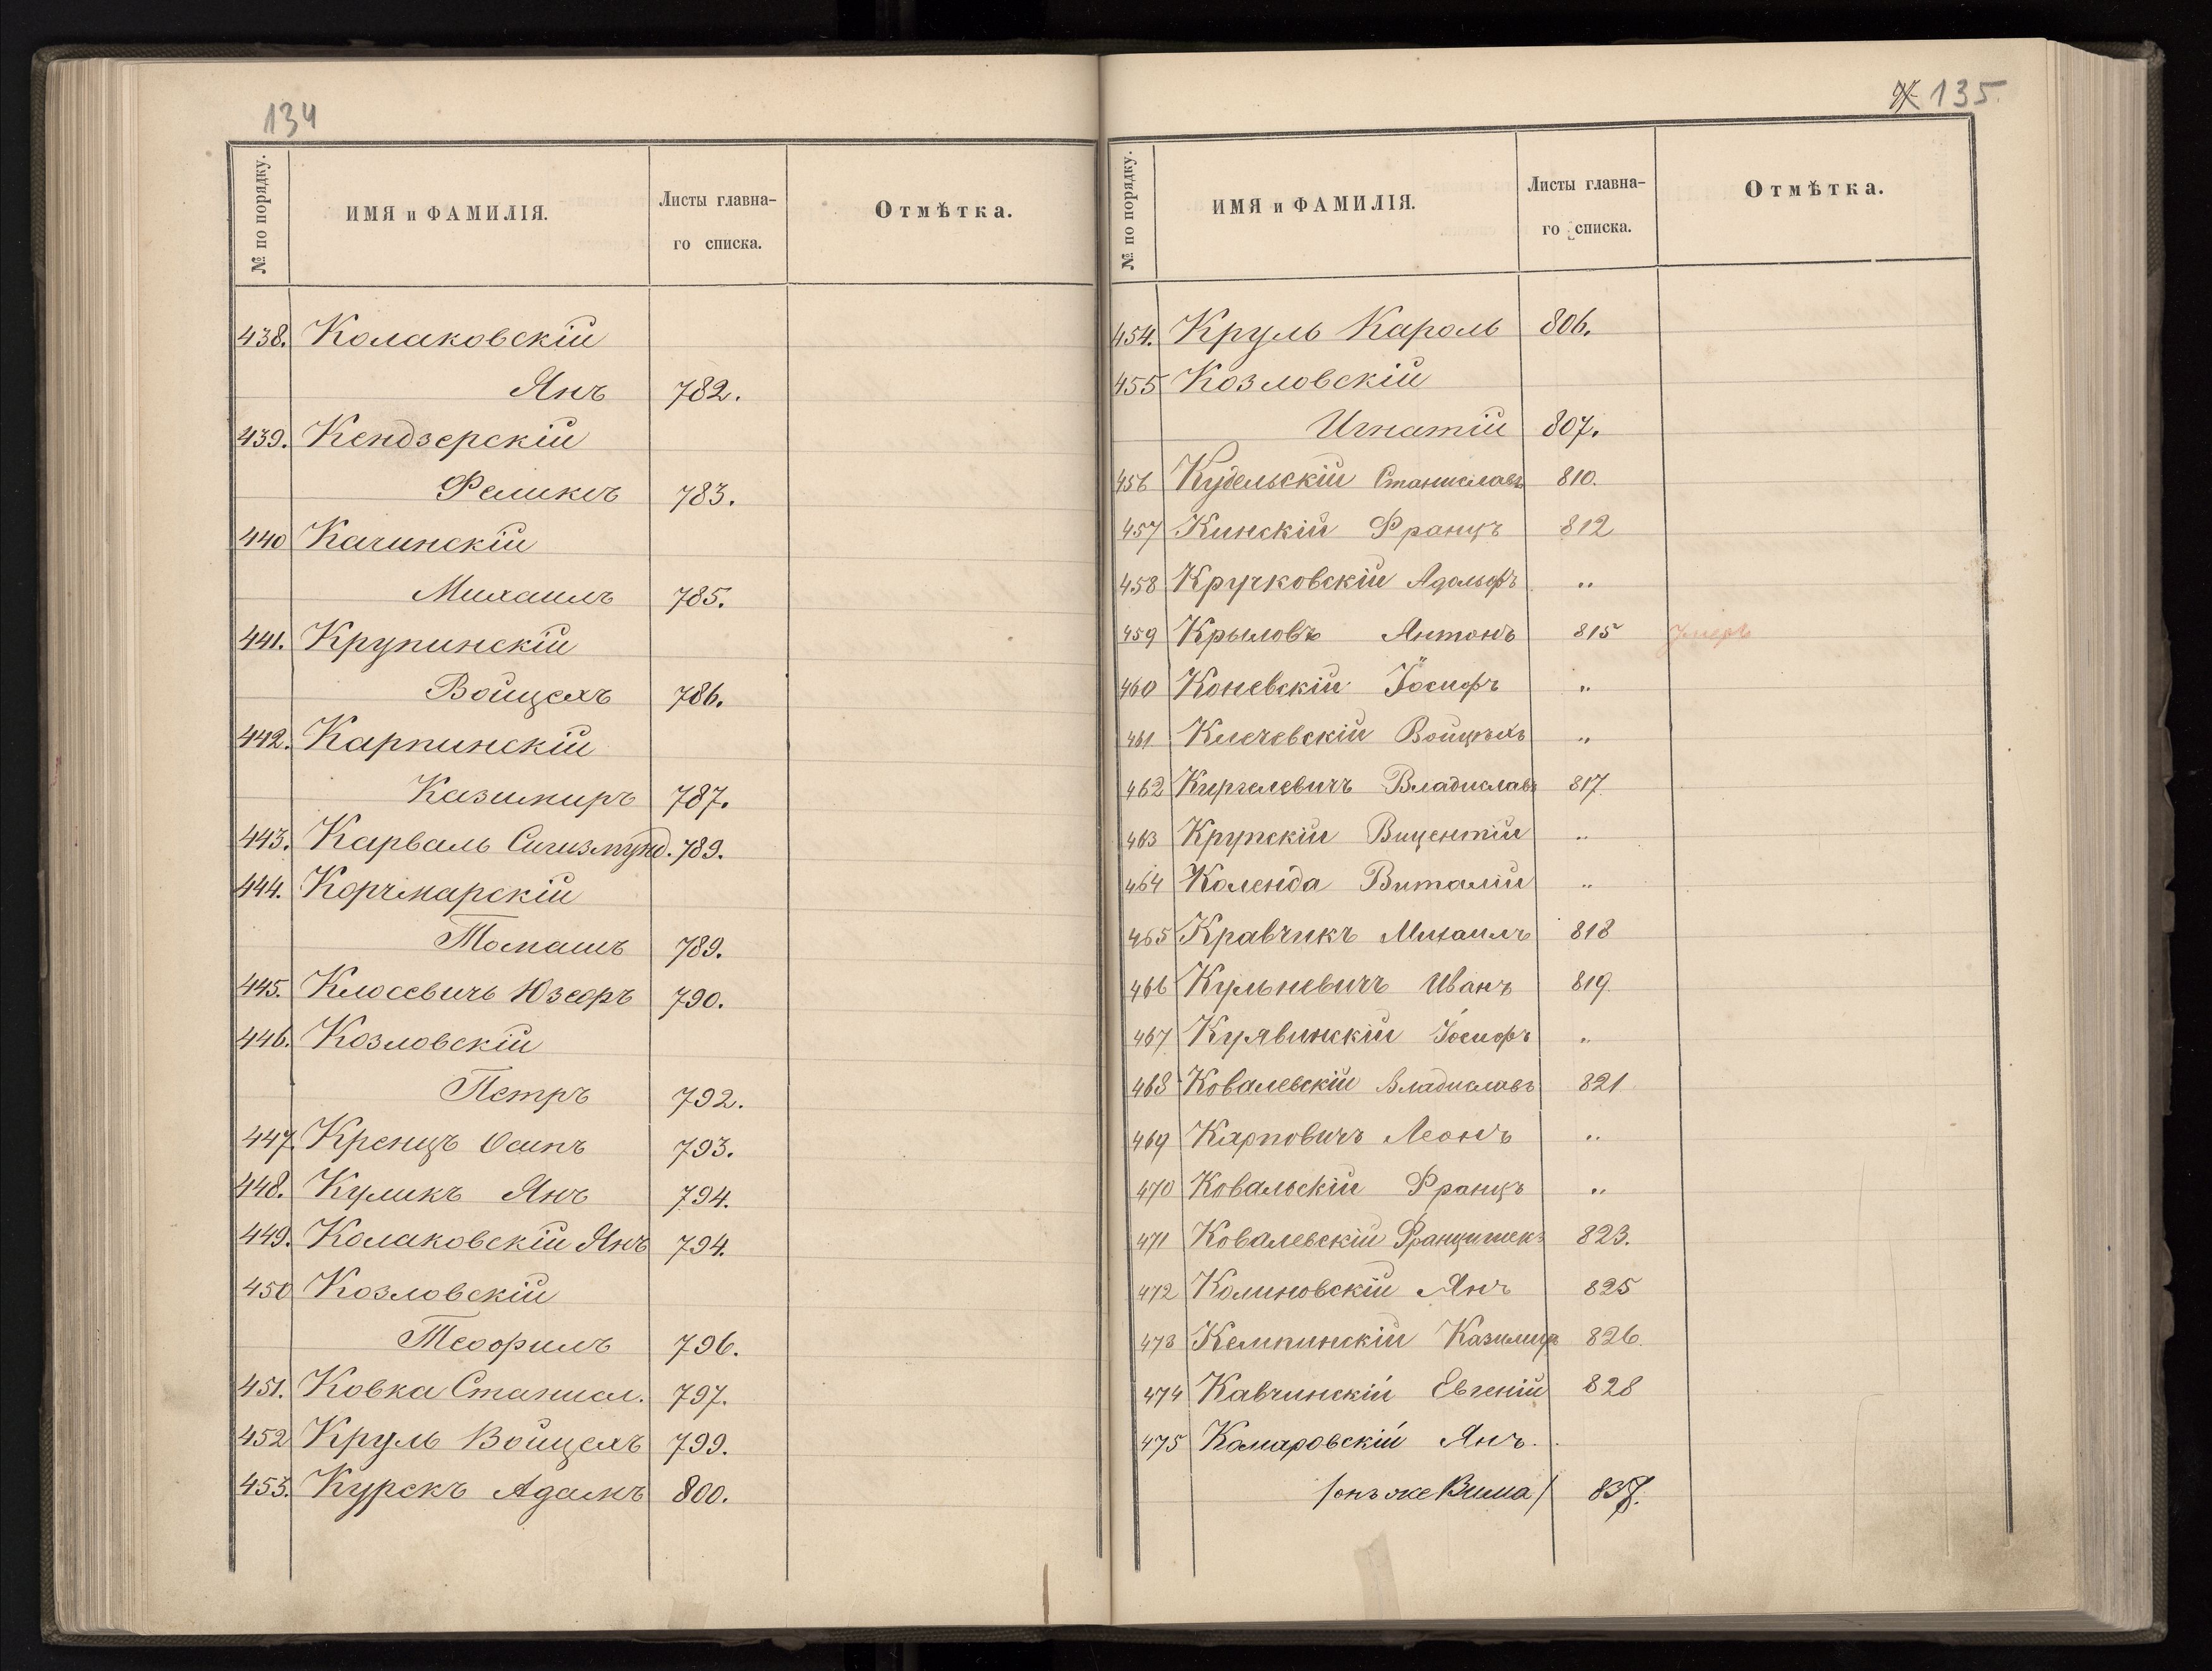 134
№ по порядку. ИМЯ и ФАМИЛІЯ. Листы главна- Отмѣтка.
го списка.
438. Колаковскій
Янъ 782.
439. Кендзерскій
Феликсъ 783.
440 Качинскій
Михаилъ 785.
441. Крупинскій
Войцехъ 786.
442. Карпинскій
Казимиръ 787.
443. Карваль Сигизмунд. 789.
444. Корчмарскій
Томашъ 789.
445. Клосевичъ Юзефъ 790.
446. Козловскій
Петръ 792.
447. Кренцъ Осипъ 793.
448. Куликъ Янъ 794.
449. Колаковскій Янъ 794.
450 Козловскій
Теофилъ 796.
451. Ковка Станисл. 797.
452 Круль Войцехъ 799.
453. Курскъ Адамъ 800.
135.
№ по порядку. ИМЯ и ФАМИЛІЯ. Листы главна- Отмѣтка.
го списка.
454. Круль Кароль 806.
455 Козловскій
Игнатій 807.
456 Кудельскій Станиславъ 810.
457 Кинскій Францъ 812
458 Кручковскій Адольфъ "
459 Крыловъ Антонъ 815 Умеръ
460 Коневскій Іосифъ "
461 Клечевскій Войцѣхъ "
462 Киргелевичъ Владиславъ 817.
463 Крупскій Вицентій "
464 Коленда Виталій "
465 Кравчикъ Михаилъ 818
466 Кульневичъ Иванъ 819.
467 Куявинскій Іосифъ "
468 Ковалевскій Владиславъ 821
469 Карповичъ Леонъ "
470 Ковальскій Францъ "
471 Ковалевскій Францишекъ 823.
472 Калиновскій Янъ 825
473 Кемпинскій Казимиръ 826.
474 Кавчинскій Евгеній 828
475 Комаровскій Янъ.
/онъ же Вима/ 837.